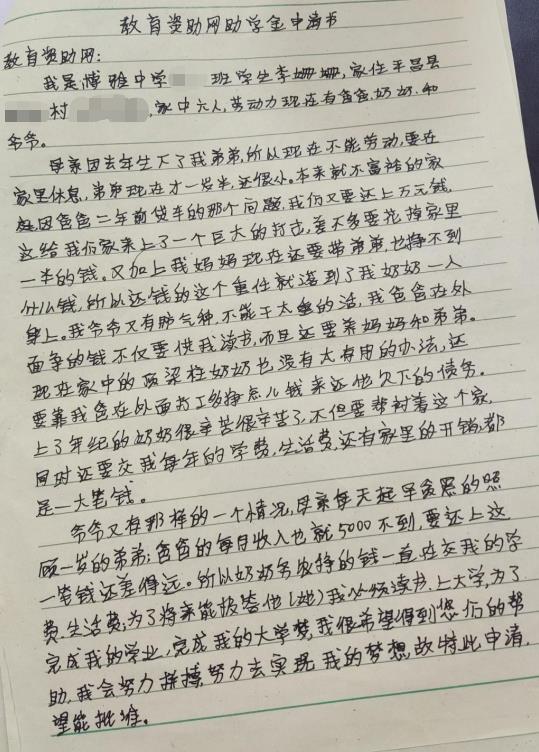 教育资助网助学金申请书
教育资助网：
我是博雅中学 班学生李姗姗，家住平昌县
村 ，家中六人，劳动力现在有爸爸、奶奶、和
爷爷。
母亲因去年生下了我弟弟，所以现在不能劳动，要在
家里休息，弟弟现在才一岁半，还很小。本来就不富裕的家
庭，因爸爸二年前货车的那个问题，我们又要还上万元钱，
这给我们家来上了一个巨大的打击，差不多要花掉家里
一半的钱。又加上我妈妈现在还要带弟弟，也挣不到
什么钱，所以还钱的这个重任就落到了我奶奶一人
身上。我爷爷又有肺气肿，不能干太重的活，我爸爸在外
面争的钱不仅要供我读书，而且还要养妈妈和弟弟。
现在家中的顶梁柱奶奶也没有太有用的办法，还
要靠我爸在外面打工多挣点儿钱来还他欠下的债务。
上了年纪的奶奶很辛苦很辛苦了，不但要帮衬着这个家，
同时还要交我每年的学费，生活费，还有家里的开销，都
是一大笔钱。
爷爷又有那样的一个情况，母亲每天起早贪黑的照
顾一岁的弟弟；爸爸的每月收入也就5000不到，要还上这
一笔钱还差得远。所以奶奶务农挣的钱一直在交我的学
费、生活费，为了将来能报答他(她)我必须读书，上大学，为了
完成我的学业，完成我的大学梦，我很希望得到您们的帮
助，我会努力拼搏，努力去实现我的梦想，故特此申请，
望能批准。